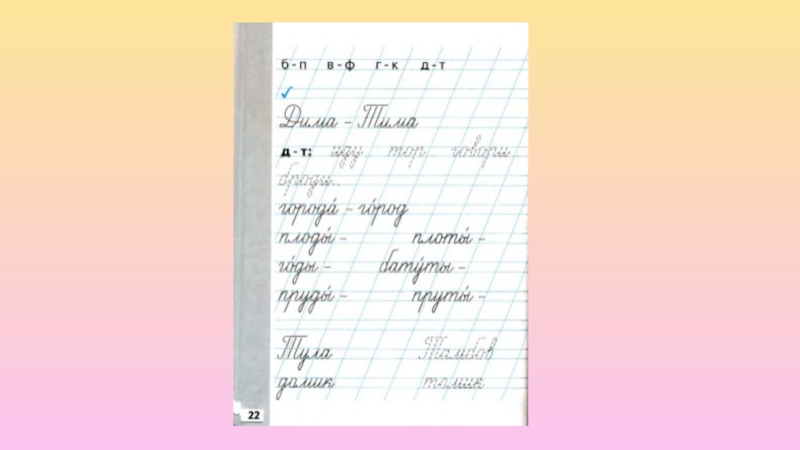 б-п в-ф г-к д-т
Дима - Тима
д-т: иду.. тор.. говори..
броди..
города́ - го́род
плоды́ - плоты́ -
го́ды - бату́ты -
пруды́ - пруты́ -
Тула Тамбов
домик томик
22